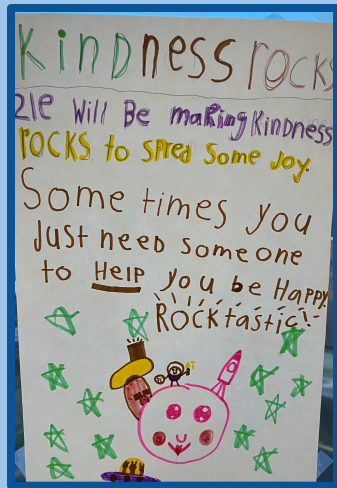 KinDness rocks
21e Will Be making Kindness
rocks to spred Some Joy.
Some times you
Just need someone
to Help you be Happy
ROCKtastic!